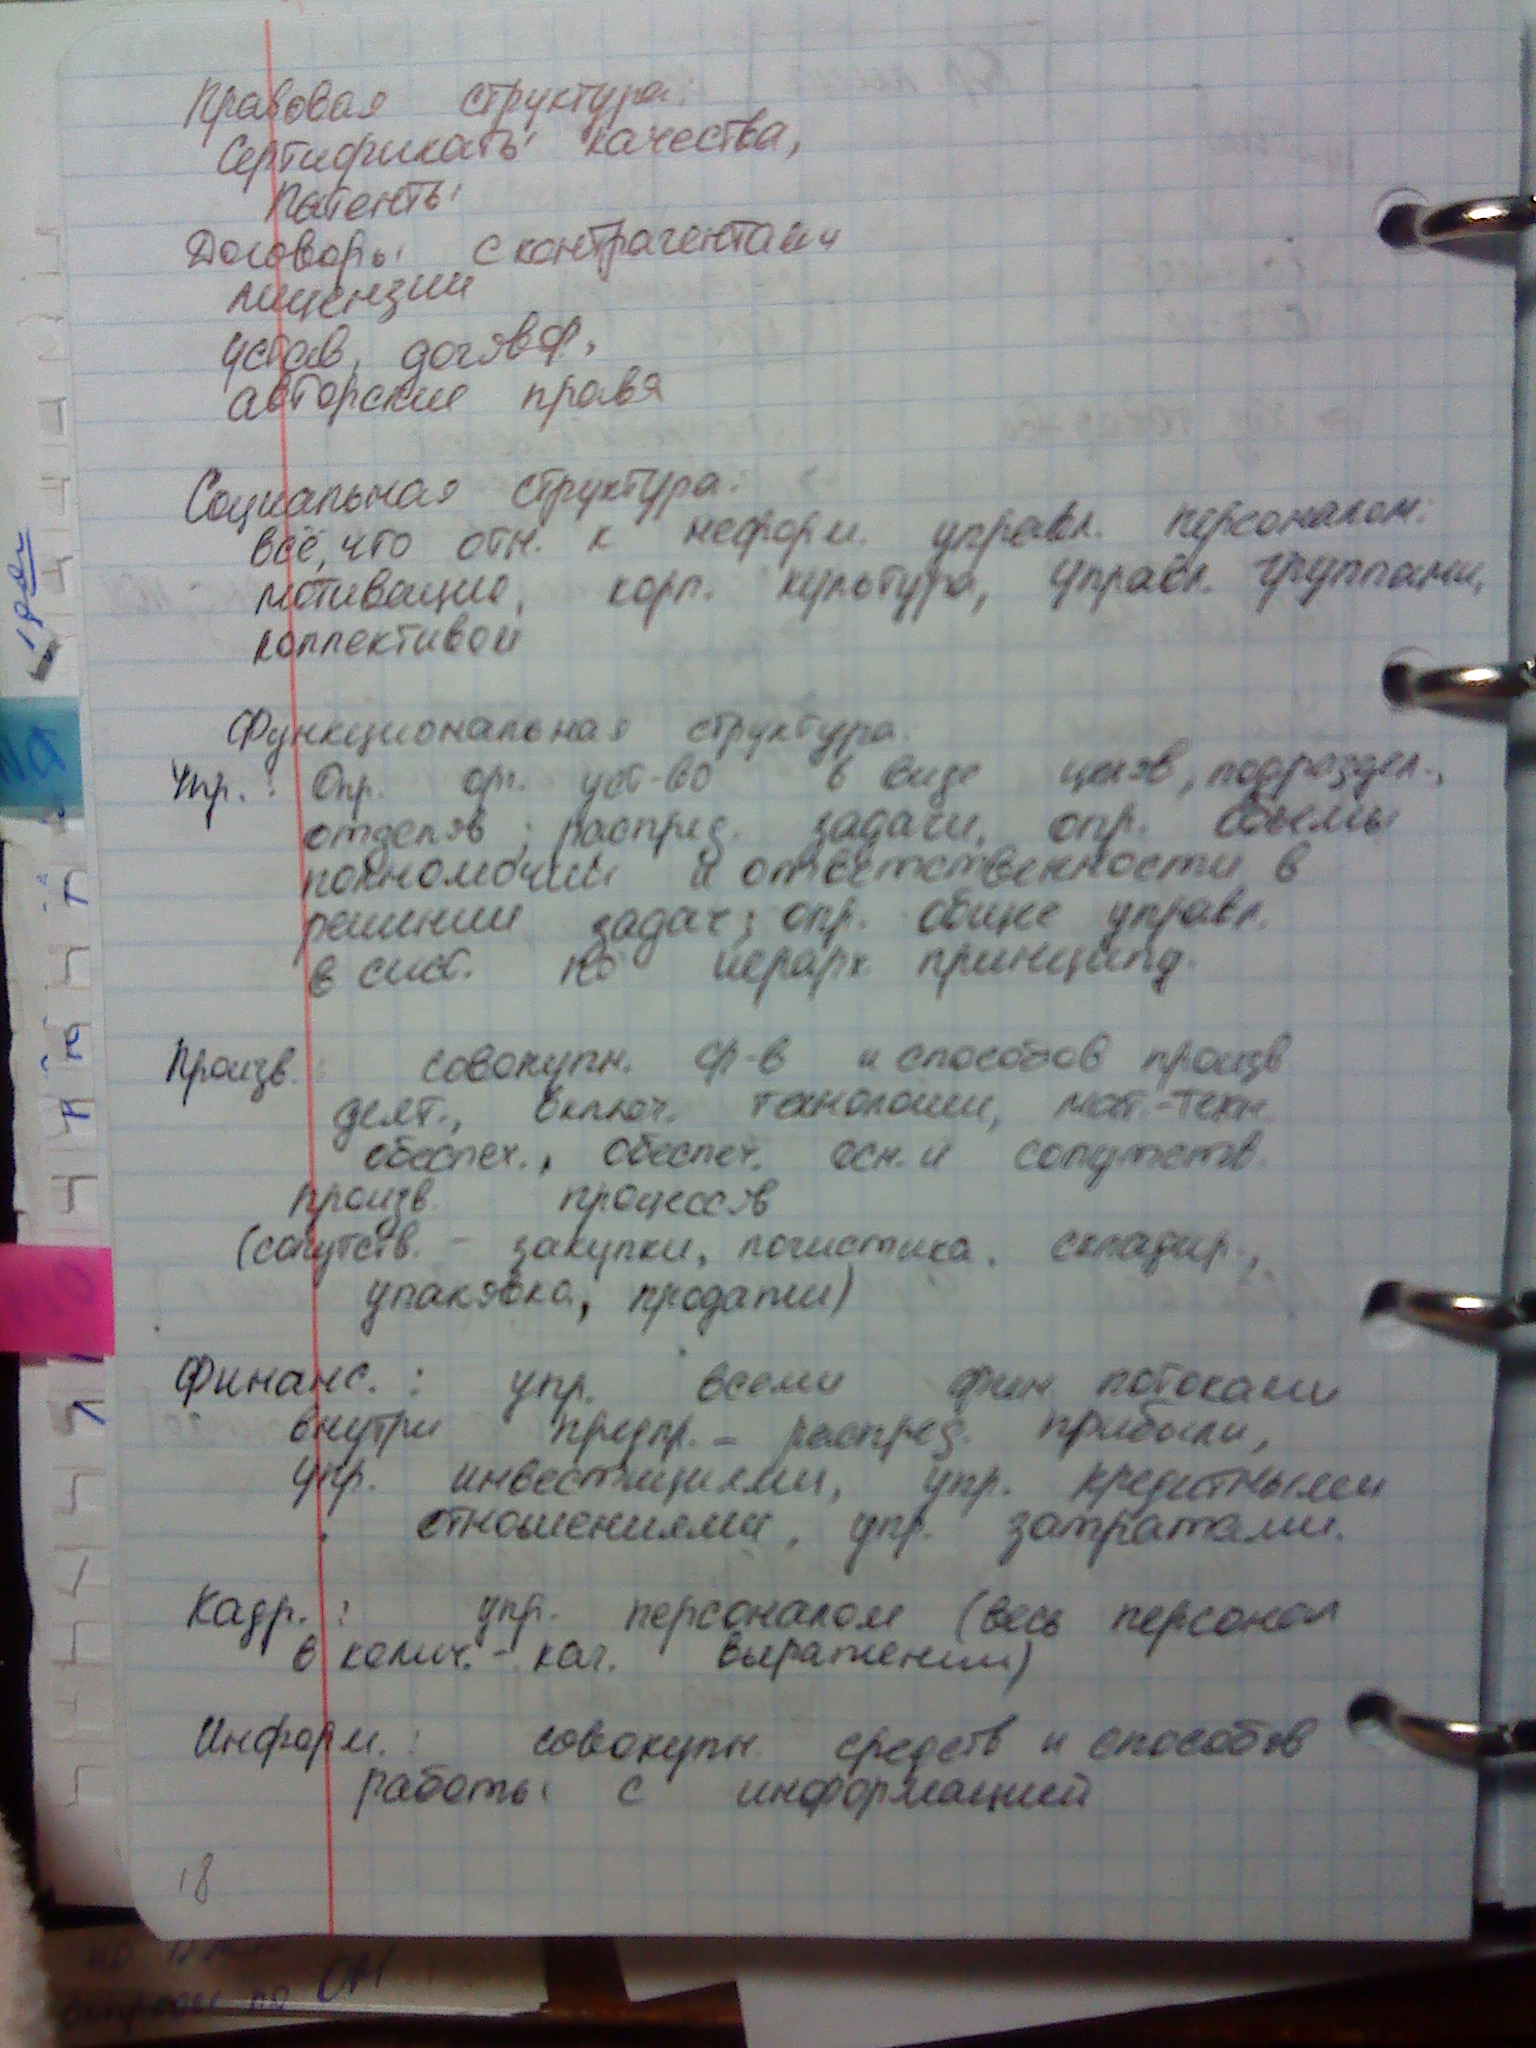 Правовая структура:
Сертификаты качества,
Патенты
Договоры с контрагентами
лицензии
устав, договор,
авторские права
Социальная структура:
всё, что отн. к неформ. управл. персоналом:
мотивацию, корп. культура, управл. группами,
коллективом
Функциональная структура:
Упр.: Опр. орг. уст-во в виде цехов, подраздел.,
отделов; распред. задачи, опр. объемы
полномочий и ответственности в
решении задач; опр. общие управл.
в сист. по иерарх. принципу.
Произв.: совокупн. ср-в и способов произв
деят., включ. технологии, мат.-техн.
обеспеч., обеспеч. осн. и сопутств.
произв. процессов
(сопутств. - закупки, логистика, складир.,
упаковка, продажи)
Финанс.: упр. всеми фин потоками
внутри предпр. - распред. прибыли,
упр. инвестициями, упр. кредитными
отношениями, упр. затратами.
Кадр.: упр. персоналом (весь персонал
в колич.-кач. выражении)
Информ.: совокупн. средств и способов
работы с информацией
18
вопросы по ОМ